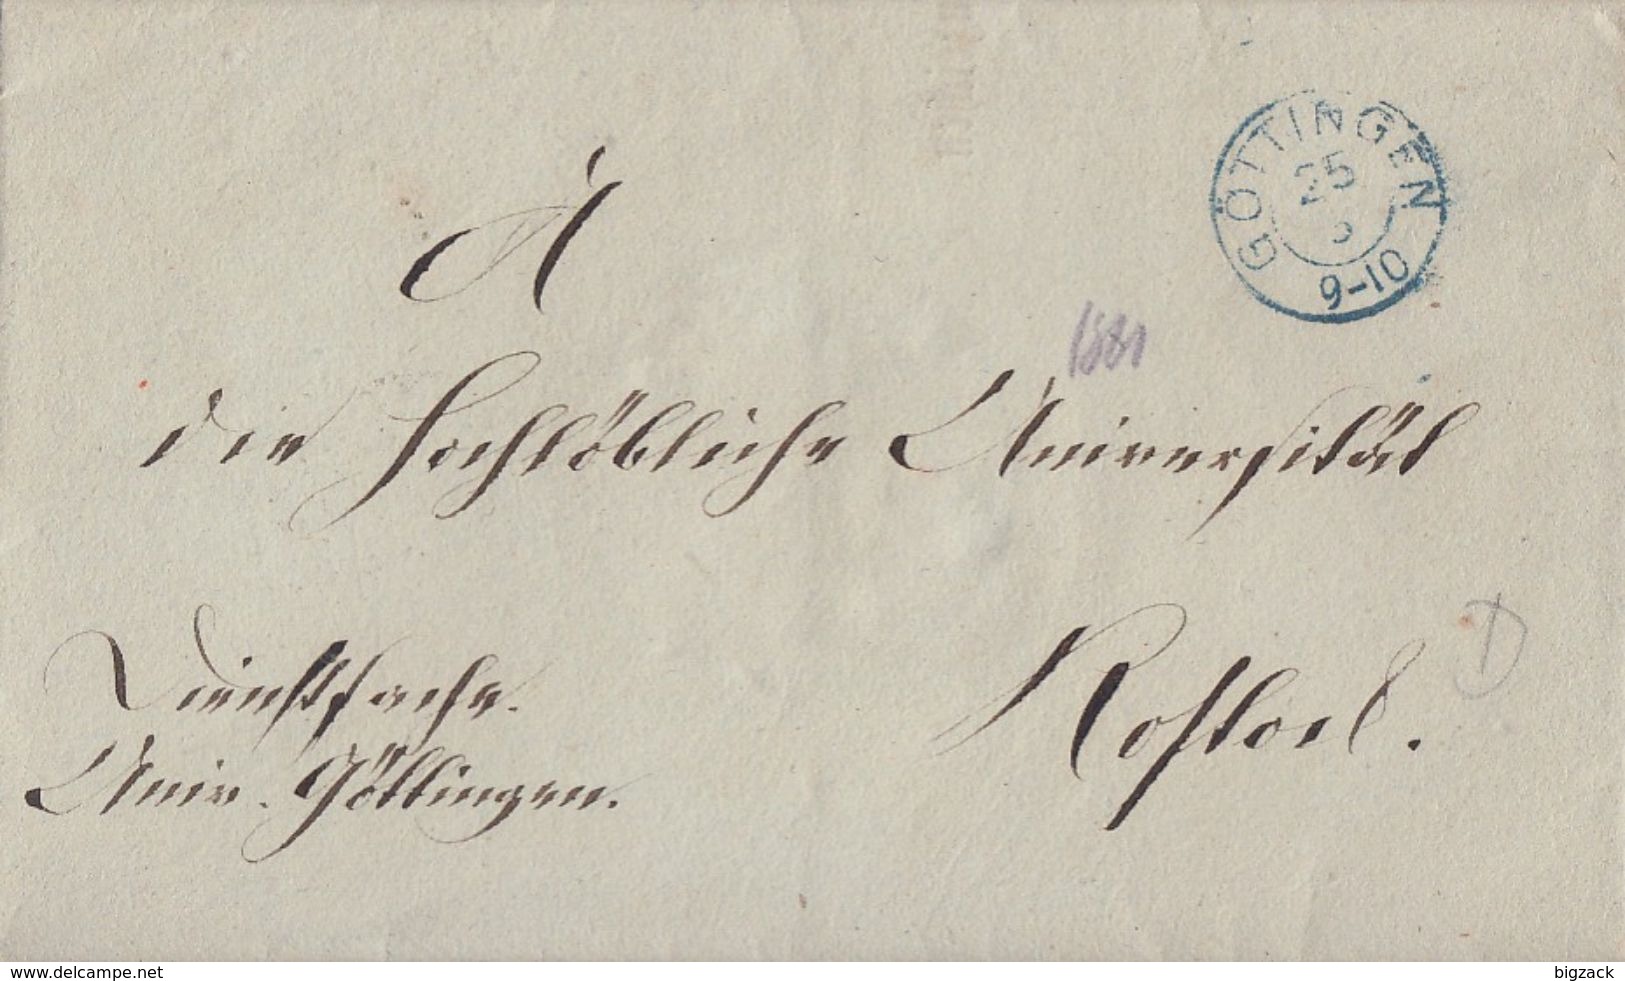 GÖTTINGEN
25
9-10
À
1881
die Hochlöbliche Universität
Dienstsache.
Univ. Göttingen.
Rostock.
D
www.delcampe.net
bigzack